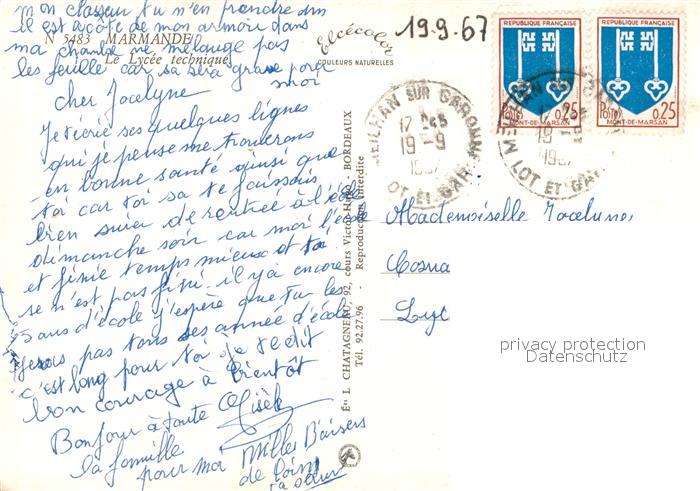 mon classeur tu m'en prendre un
il est a côté de mon armoir dans
ma chambre ne mélange pas
les feuille car sa sera grave pour
moi
N 5483 MARMANDE
Le Lycée technique
Elcécolor
COULEURS NATURELLES
19.9.67
cher Jocelyne
Je t'écrie ses quelques lignes
qui je pense me trouverons
en bonne santé ainsi que
toi car toi sa te faissais
bien suier de rentrée à l'école
dimanche soir car moi l'école
et finie temps mieux et toi
se n'est pas fini il y a encore
5 ans d'école j'espère que tu les
feras pas tous ses année d'école
c'est long pour toi je te dit
bon courage à bientôt
Gisèle
Bonjour à toute
la famille
pour moi Milles Baisers
de loin
ta sœur
Éts L CHATAGNEAU, 92, cours Victor-Hugo, BORDEAUX
Tél. 92.27.96 - Reproduction Interdite
REPUBLIQUE FRANÇAISE
Postes 0,25
MONT-DE-MARSAN
REPUBLIQUE FRANÇAISE
Postes 0,25
MONT-DE-MARSAN
MEILHAN SUR GARONNE
17 H 45
19 - 9
1967
LOT ET GAR
MEILHAN
19
1967
LOT ET GA
Mademoiselle Jocelyne
Cosna
Lyc
privacy protection
Datenschutz